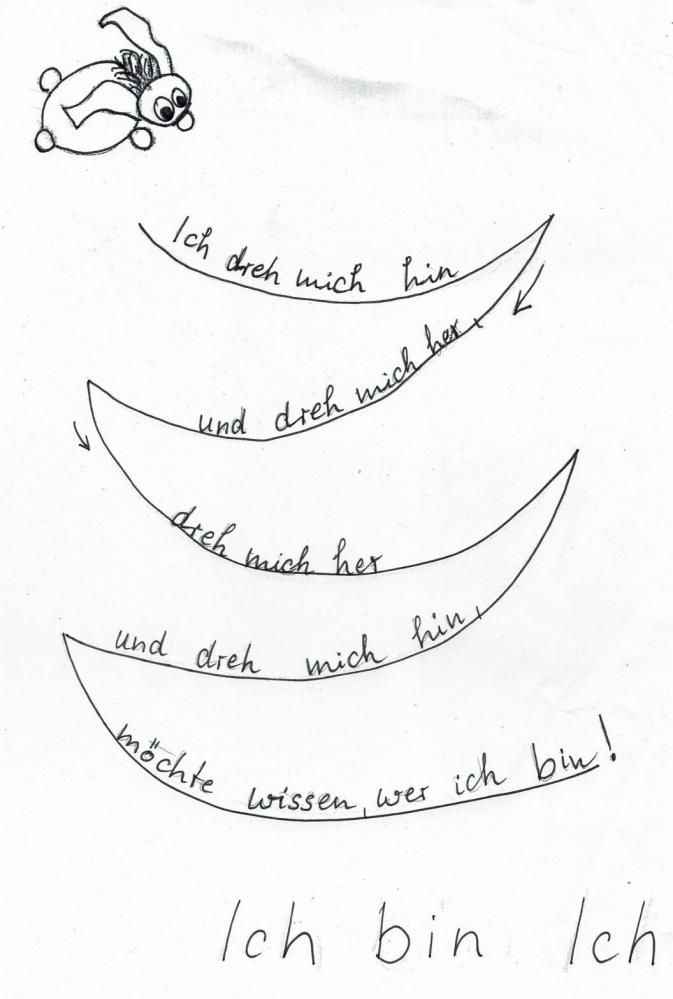 Ich dreh mich hin
und dreh mich her,
dreh mich her
und dreh mich hin,
möchte wissen, wer ich bin!
Ich bin Ich